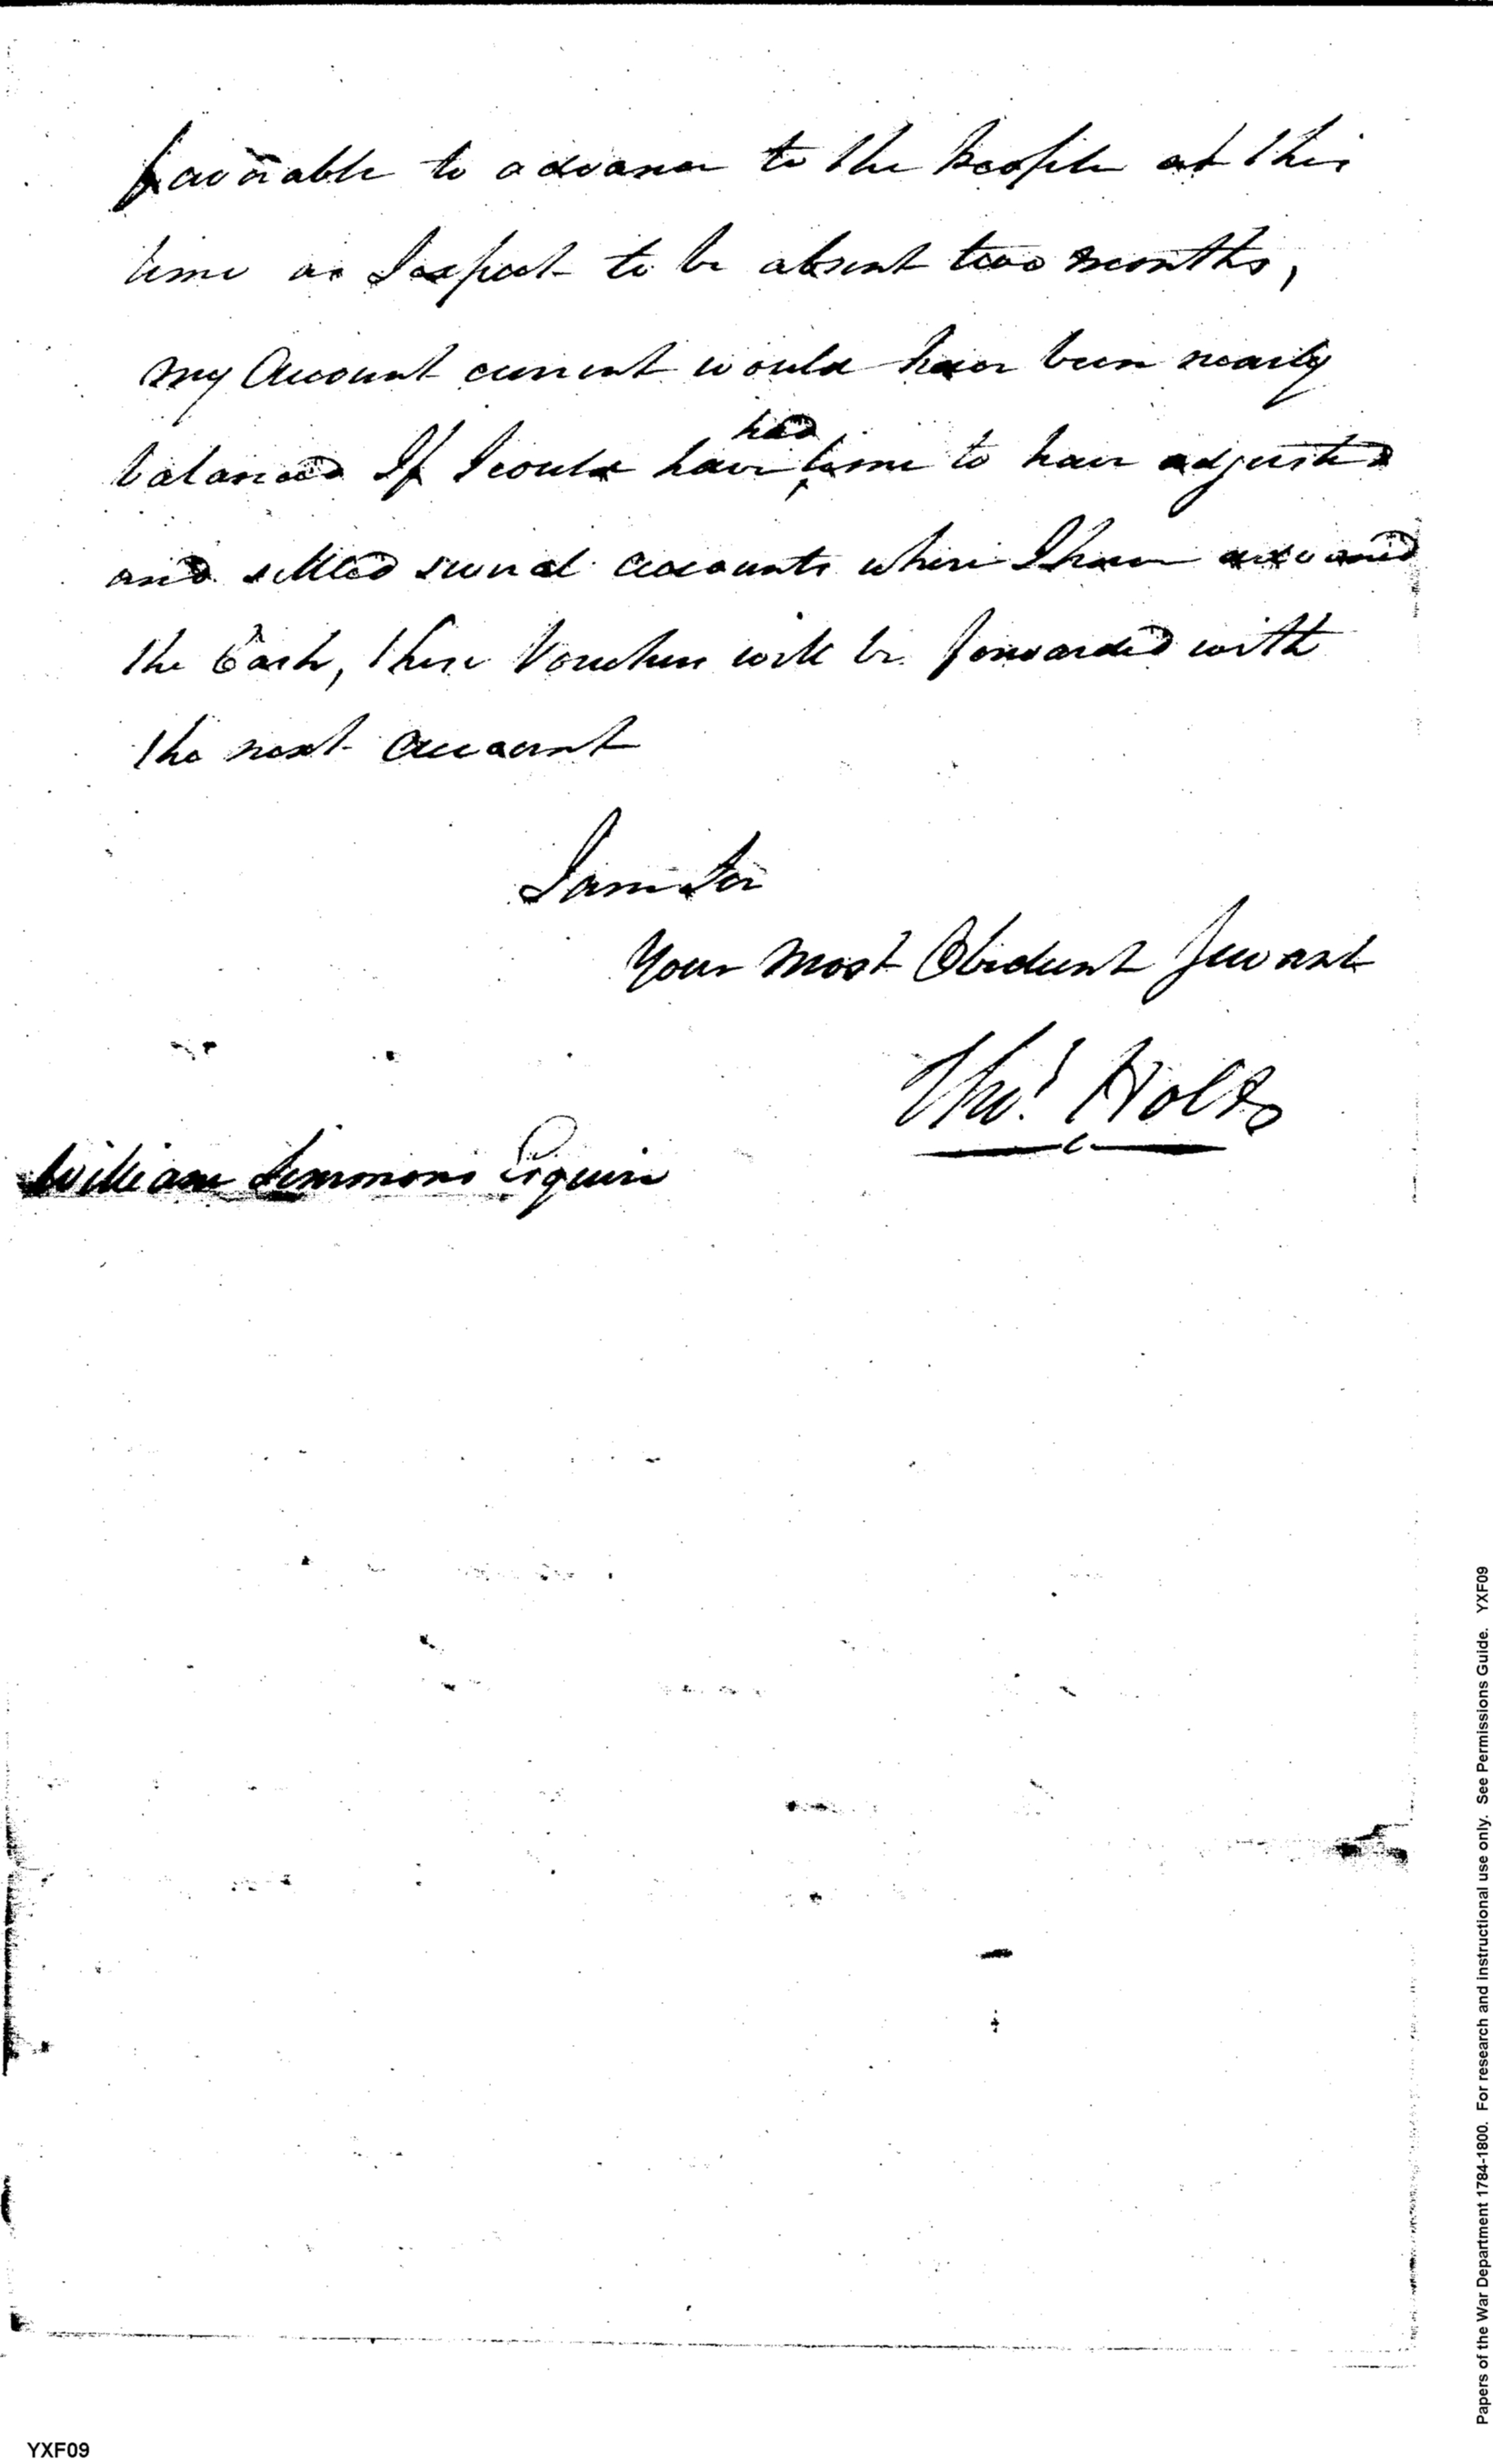 favorable to advance to the People at this
time as I expect to be absent two months,
my Account current would have been nearly
had
balanced If I could have time to have adjusted
and settled several accounts where I have advanced
the Cash, these Vouchers will be forwarded with
the next account
I am Sir
Your most Obedient Servant
Tho.s Holt
William Simmons Esquire
Papers of the War Department 1784-1800. For research and instructional use only. See Permissions Guide. YXF09
YXF09